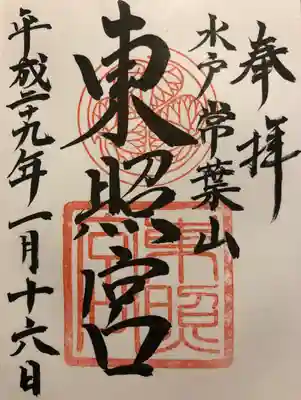 奉拝
水戸常葉山
東照宮
平成二十九年一月十六日